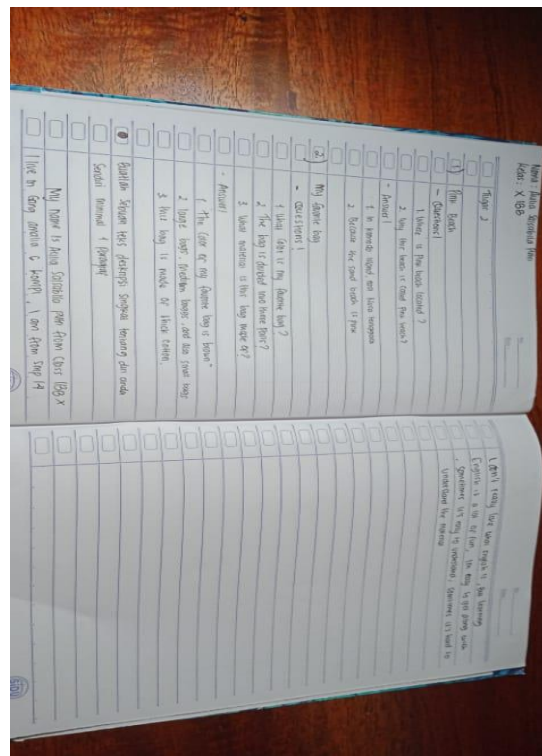 Nama Aulia Salsabila putri
Kelas: X IBB
Tugas 2
1 Pink Beach
- Questions!
1. Where is Pink beach located?
2. Why this beach is called Pink beach?
- Answer!
1. In komodo island east Nusa tenggara
2. Because the sand beach is pink
2 My Favorite bag
- Questions!
1. What Color is my favorite bag?
2. The bag is divided into three parts?
3. What material is this bag made of?
- Answer!
1. The Color of my favorite bag is brown
2. large bags, medium bags, and also small bags
3. this bag is made of thick cotton.
Buatlah Sebuah teks deskripsi singkat tentang diri anda
Sendiri minimal 1 paragraf
My name is Aulia Salsabila from Class IBB.X
I live in Gang amalia 6 kompi, I am from Smp 14
I don't really love what english is, but learning
English is a lot of fun, I'm easy to get along with
, sometimes it's easy to understand, sometimes it's hard to
understand the material
SIDU